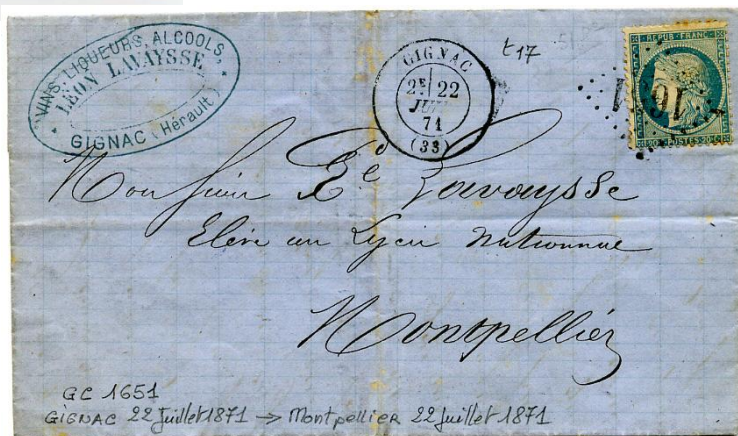 VINS, LIQUEURS, ALCOOLS,
LÉON LAVAYSSE
GIGNAC (Hérault)
GIGNAC
2E 22
JUIL
71
(33)
t17
REPUB. FRANC.
1651
20 C POSTES 20 C
Monsieur E Lavaysse
Elève au Lycée Nationnal
Montpellier
GC 1651
GIGNAC 22 Juillet 1871 → Montpellier 22 Juillet 1871